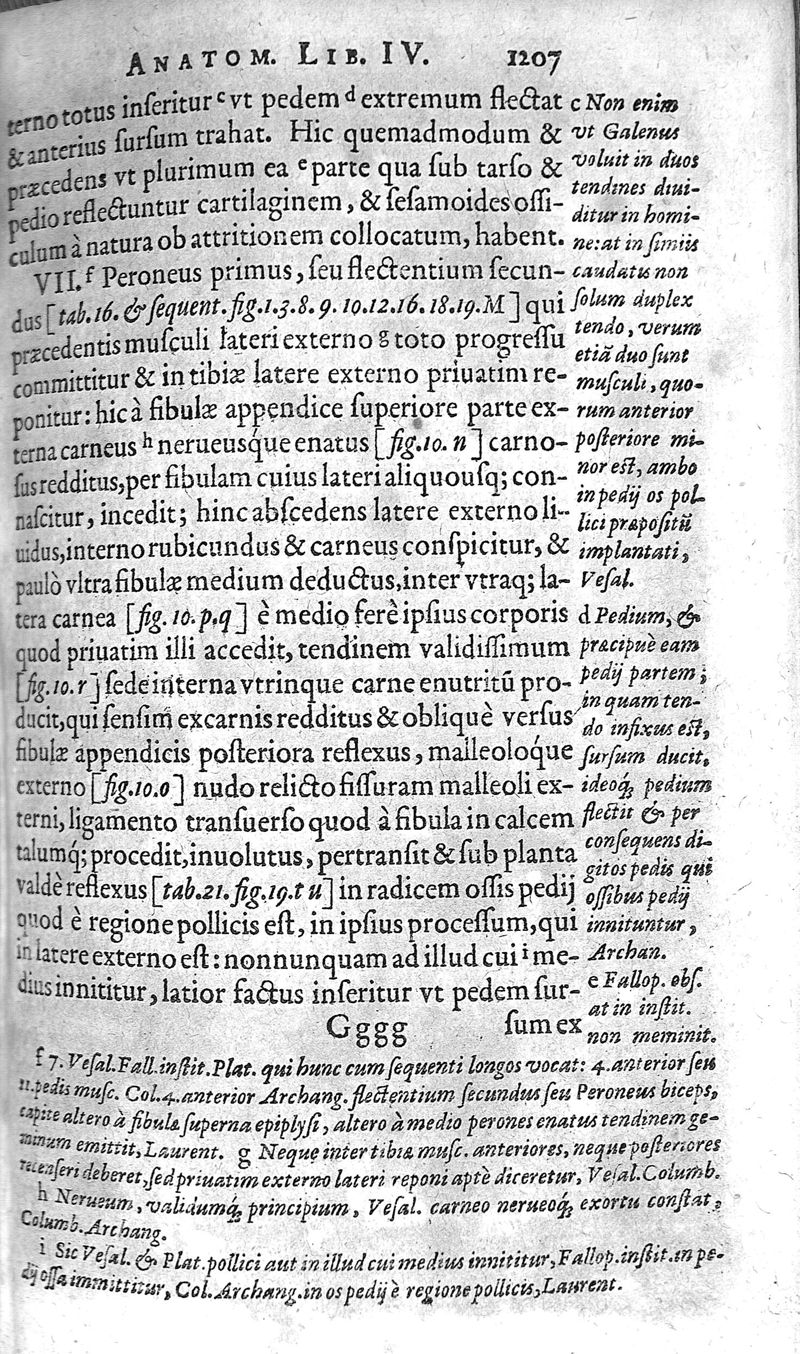 ANATOM. LIB. IV. 1207
terno totus inſeritur c vt pedem d extremum flectat
& anterius ſurſum trahat. Hic quemadmodum &
præcedens vt plurimum ea e parte qua ſub tarſo &
pedio reflectuntur cartilaginem, & ſeſamoides oſſi-
culum à natura ob attritionem collocatum, habent.
VII. f Peroneus primus, ſeu flectentium ſecun-
dus [tab.16. & ſequent. fig.1.3.8.9.10.12.16.18.19.M] qui
præcedentis muſculi lateri externo g toto progreſſu
committitur & in tibiæ latere externo priuatim re-
ponitur: hic à fibulæ appendice ſuperiore parte ex-
terna carneus h nerueusq́ue enatus [fig.10. n] carno-
ſus redditus, per fibulam cuius lateri aliquouſq; con-
naſcitur, incedit; hinc abſcedens latere externo li-
uidus, interno rubicundus & carneus conſpicitur, &
paulò vltra fibulæ medium deductus, inter vtraq; la-
tera carnea [fig. 10. p.q] è medio ferè ipſius corporis
quod priuatim illi accedit, tendinem validiſſimum
[fig.10.r] ſede interna vtrinque carne enutritū pro-
ducit, qui ſenſim excarnis redditus & obliquè verſus
fibulæ appendicis poſteriora reflexus, malleoloq́ue
externo [fig.10.o] nudo relicto fiſſuram malleoli ex-
terni, ligamento tranſuerſo quod à fibula in calcem
talumq́; procedit, inuolutus, pertranſit & ſub planta
valdè reflexus [tab.21. fig.19.t u] in radicem oſſis pedij
quod è regione pollicis eſt, in ipſius proceſſum, qui
in latere externo est: nonnunquam ad illud cui i me-
dius innititur, latior factus inſeritur vt pedem ſur-
Gggg ſum ex
c Non enim
vt Galenus
voluit in duos
tendines diui-
ditur in homi-
ne: at in ſimiis
caudatis non
ſolum duplex
tendo, verum
etiã duo ſunt
muſculi, quo-
rum anterior
poſteriore mi-
nor eſt, ambo
in pedij os pol-
lici præpoſitũ
implantati,
Veſal.
d Pedium, &
præcipuè eam
pedij partem;
in quam ten-
do infixus eſt,
ſurſum ducit,
ideoq́; pedium
flectit & per
conſequens di-
gitos pedis qui
oſſibus pedij
innituntur,
Archan.
e Fallop. obſ.
at in inſtit.
non meminit.
f 7. Veſal. Fall. inſtit. Plat. qui hunc cum ſequenti longos vocat: 4. anterior ſeu
11. pedis muſc. Col. 4. anterior Archang. flectentium ſecundus ſeu Peroneus biceps,
capite altero à fibula ſuperna epiplyſi, altero à medio perones enatus tendinem ge-
minum emittit, Laurent. g Neque inter tibiæ muſc. anteriores, neque poſteriores
recenſeri deberet, ſed priuatim externo lateri reponi aptè diceretur, Veſal. Columb.
h Nerueum, validumq́; principium, Veſal. carneo nerueoq́; exortu conſtat,
Columb. Archang.
i Sic Veſal. & Plat. pollici aut in illud cui medius innititur, Fallop. inſtit. in pe-
dij oſſa immittitur, Col. Archang. in os pedij è regione pollicis, Laurent.